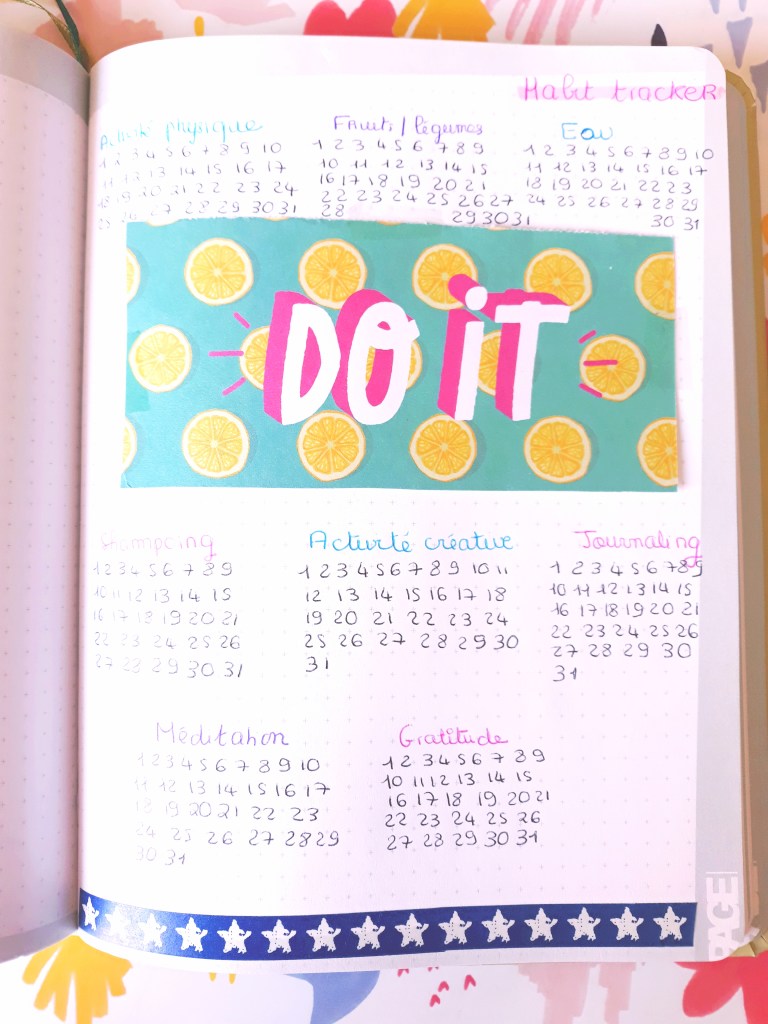 Habit tracker
Activité physique
1 2 3 4 5 6 7 8 9 10
11 12 13 14 15 16 17
18 19 20 21 22 23 24
25 26 27 28 29 30 31
Fruits / légumes
1 2 3 4 5 6 7 8 9
10 11 12 13 14 15
16 17 18 19 20 21
22 23 24 25 26 27
28 29 30 31
Eau
1 2 3 4 5 6 7 8 9 10
11 12 13 14 15 16 17
18 19 20 21 22 23
24 25 26 27 28 29
30 31
DO iT
Shampoing
1 2 3 4 5 6 7 8 9
10 11 12 13 14 15
16 17 18 19 20 21
22 23 24 25 26
27 28 29 30 31
Activité créative
1 2 3 4 5 6 7 8 9 10 11
12 13 14 15 16 17 18
19 20 21 22 23 24
25 26 27 28 29 30
31
Journaling
1 2 3 4 5 6 7 8 9
10 11 12 13 14 15
16 17 18 19 20 21
22 23 24 25 26
27 28 29 30
31
Méditation
1 2 3 4 5 6 7 8 9 10
11 12 13 14 15 16 17
18 19 20 21 22 23
24 25 26 27 28 29
30 31
Gratitude
1 2 3 4 5 6 7 8 9
10 11 12 13 14 15
16 17 18 19 20 21
22 23 24 25 26
27 28 29 30 31